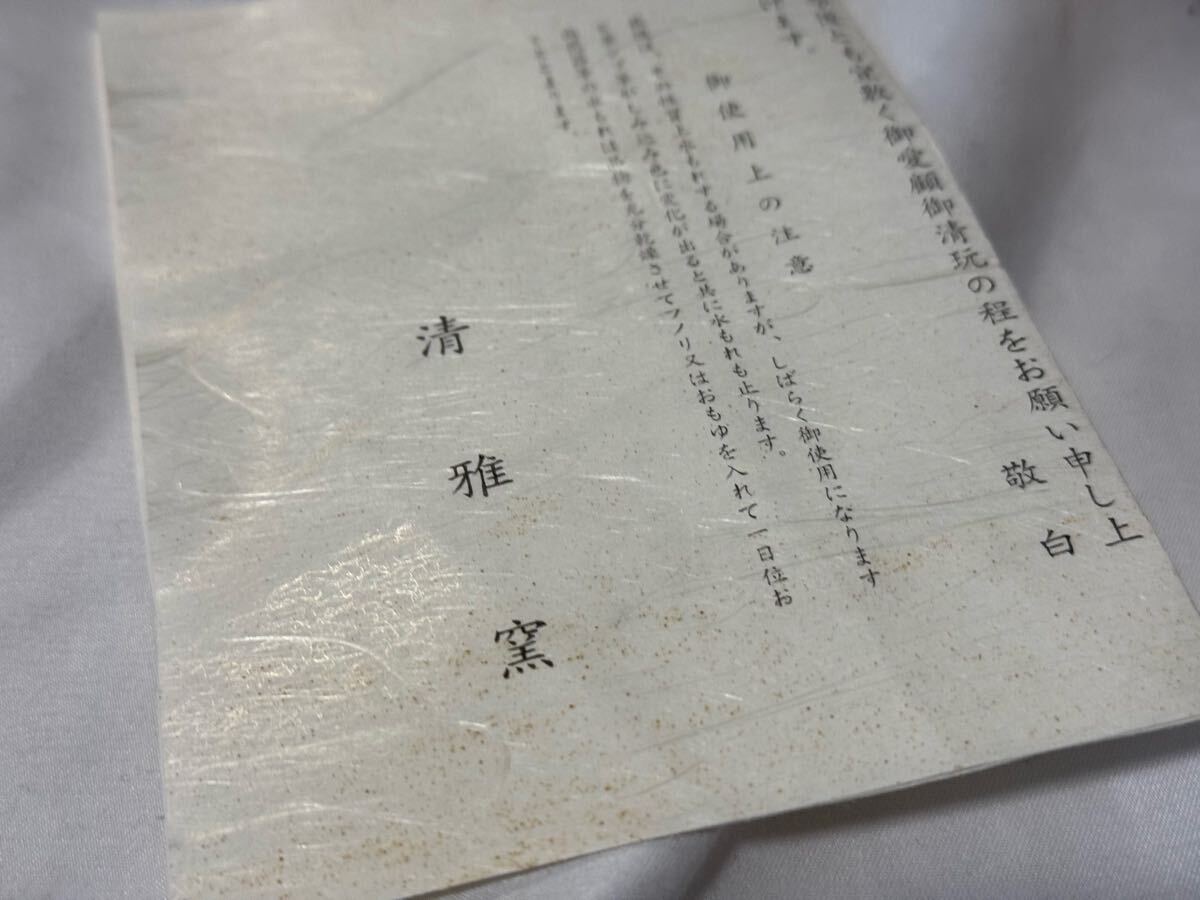 幾久しく御愛顧御清玩の程をお願い申し上
げます。
敬白
御使用上の注意
その性質上水もれする場合がありますが、しばらく御使用になります
しみ込み色に変化が出ると共に水もれも止ります。
水もれは品物を充分乾燥させてフノリ又はおもゆを入れて一日位お
きます。
清雅窯